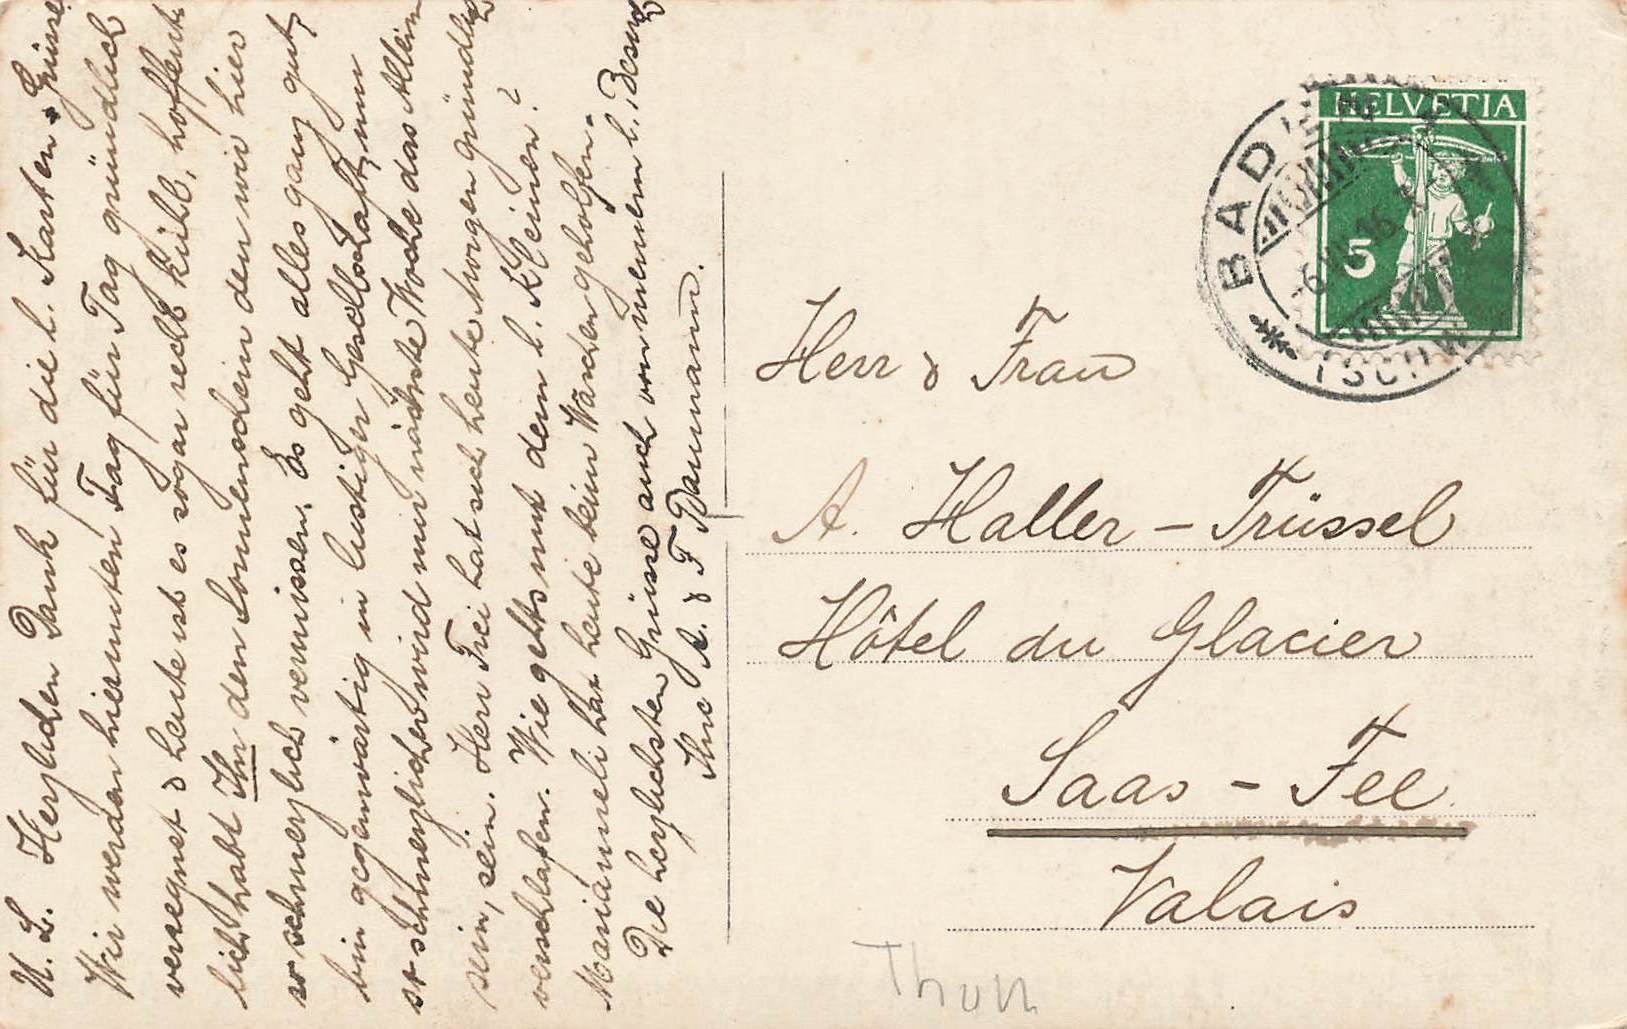 M. L. Herzlichen Dank für die l. Karten & Grüsse
Wir werden hierunten Tag für Tag gründlich
verregnet & heute ist es sogar recht kühl, hoffent-
lich habt Ihr den Sonnenschein den wir hier
so schmerzlich vermissen. Es geht alles ganz gut,
bin gegenwärtig in lustiger Gesellschaft, um
so schmerzlicher wird mir nächste Woche das Allein
sein, sein. Herr Frei hat sich heute morgen gründlich
verschlafen. Wie gehts mit dem l. Kleinen?
Mariánneli hat heute beim Waschen geholfen.
Die herzlichsten Grüsse auch von meinem l. Besuch
Ihre A. & F Baumann.
HELVETIA
5
BADEN
-6.VII.16
(SCHW
Herr & Frau
A. Haller - Trüssel
Hôtel du Glacier
Saas - Fee
Valais
Thun